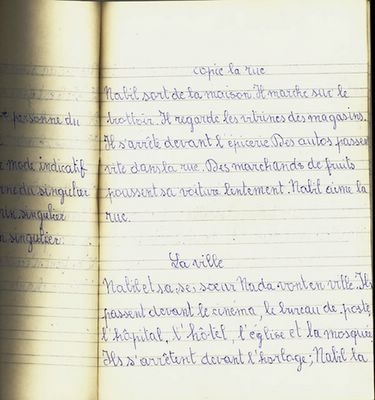 personne du
mode indicatif
du singulier
singulier
singulier.
copie la rue
Nabil sort de la maison. Il marche sur le
trottoir. Il regarde les vitrines des magasins.
Il s'arrête devant l'épicerie. Des autos passent
vite dans la rue. Des marchands de fruits
poussent sa voiture lentement. Nabil aime la
rue.
La ville
Nabil et sa, se, soeur Nada vont en ville. Ils
passent devant le cinéma, le bureau de poste,
l'hôpital, l'hôtel, l'église et la mosquée
Ils s'arrêtent devant l'horloge; Nabil la